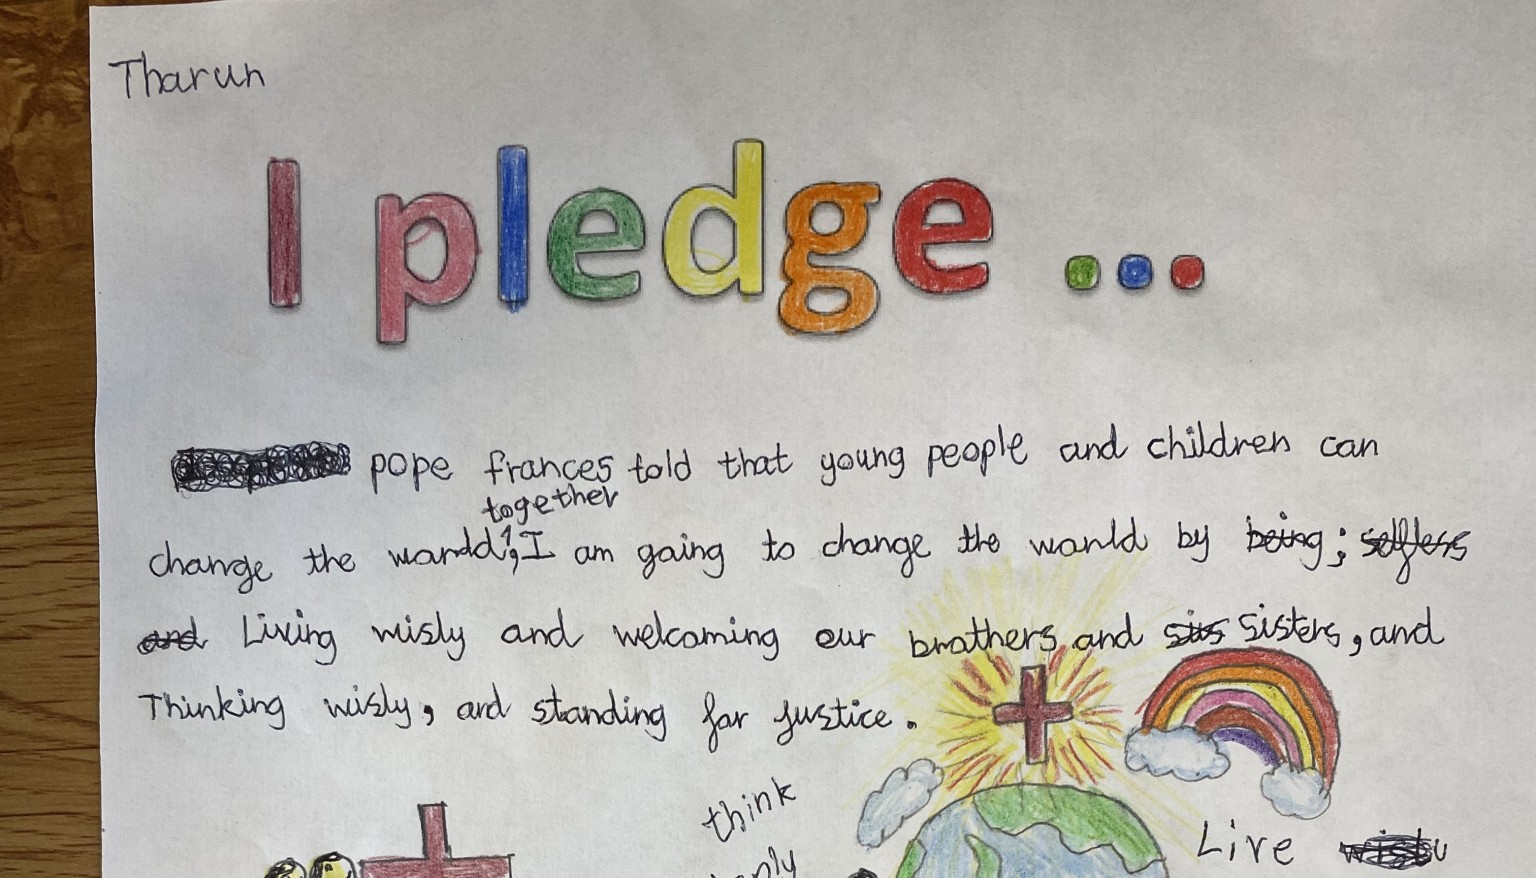 Tharun
I pledge ...
pope frances told that young people and children can
together
change the warld, I am going to change the warld by being; selfless
and Living wisly and welcoming our brathers and siss sisters, and
Thinking wisly, and standing far justice.
think
Live